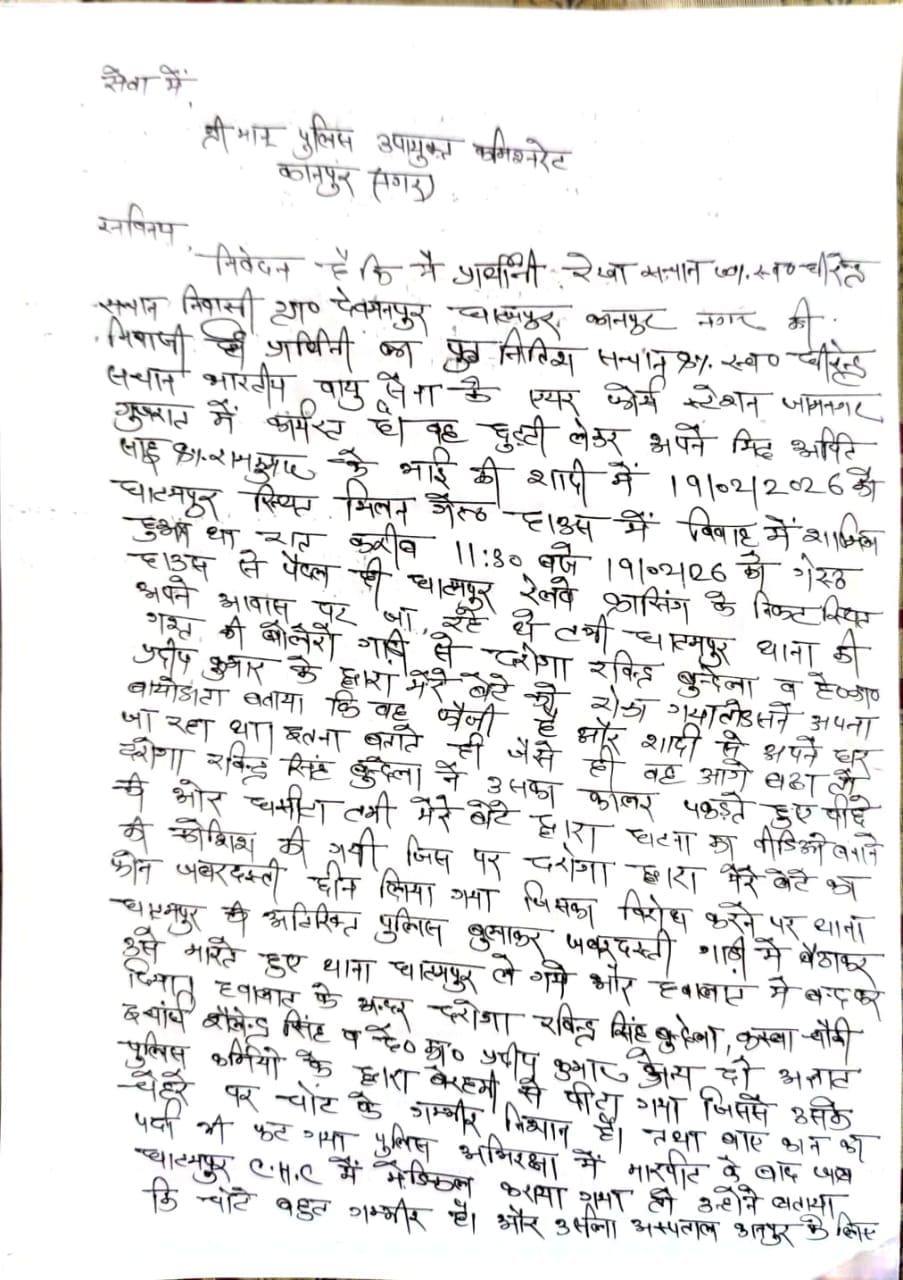 सेवा में,
श्रीमान पुलिस उपायुक्त कमिश्नरेट
कानपुर (नगर)
सविनय,
निवेदन है कि मै प्रार्थीनी रेखा सचान w/o स्व० धीरेन्द्र
सचान निवासी ग्रा० देवमनपुर घाटमपुर कानपुर नगर की
निवासी है प्रार्थिनी का पुत्र नितिश सचान s/o स्व० धीरेन्द्र
सचान भारतीय वायु सेना के एयर फोर्स स्टेशन जामनगर
गुजरात में कार्यरत है। वह छुट्टी लेकर अपने मित्र अर्पित
साहू s/o रामकुमार के भाई की शादी में 19/02/2026 को
घाटमपुर स्थित मिलन गेस्ट हाउस में विवाह में शामिल
हुआ था रात करीब 11:30 बजे 19/02/26 को गेस्ट
हाउस से पैदल ही घाटमपुर रेलवे क्रासिंग के निकट स्थित
अपने आवास पर जा रहे थे तभी घाटमपुर थाना की
गश्त की बोलेरो गाड़ी से दरोगा रविन्द्र बुन्देला व हे०का०
प्रदीप कुमार के द्वारा मेरे बेटे को रोका गया तो उसने अपना
बायोडाटा बताया कि वह फौजी है और शादी से अपने घर
जा रहा था। इतना बताते ही जैसे ही वह आगे बढा तो
दरोगा रविन्द्र सिंह बुन्देला ने उसका कालर पकड़ते हुए पीछे
की ओर घसीटा तभी मेरे बेटे द्वारा घटना का वीडिओ बनाने
की कोशिश की गयी जिस पर दरोगा द्वारा मेरे बेटे का
फोन जबरदस्ती छीन लिया गया जिसका विरोध करने पर थाना
घाटमपुर से अतिरिक्त पुलिस बुलाकर जबरदस्ती गाड़ी में बैठाकर
उसे मारते हुए थाना घाटमपुर ले गये और हवालात में बन्द कर
दिया। हवालात के अन्दर दरोगा रविन्द्र सिंह बुन्देला, कस्बा चौकी
इंचार्ज शैलेन्द्र सिंह व हे० का० प्रदीप कुमार अन्य दो अज्ञात
पुलिस कर्मियो के द्वारा बेरहमी से पीटा गया जिससे उसके
चेहरे पर चोंट के गम्भीर निशान है। तथा बाए कान का
पर्दा भी फट गया पुलिस अभिरक्षा में मारपीट के बाद जब
घाटमपुर C.H.C में मेडिकल कराया गया तो उन्होने बताया
कि चोंटे बहुत गम्भीर है। और उर्सला अस्पताल कानपुर के लिए